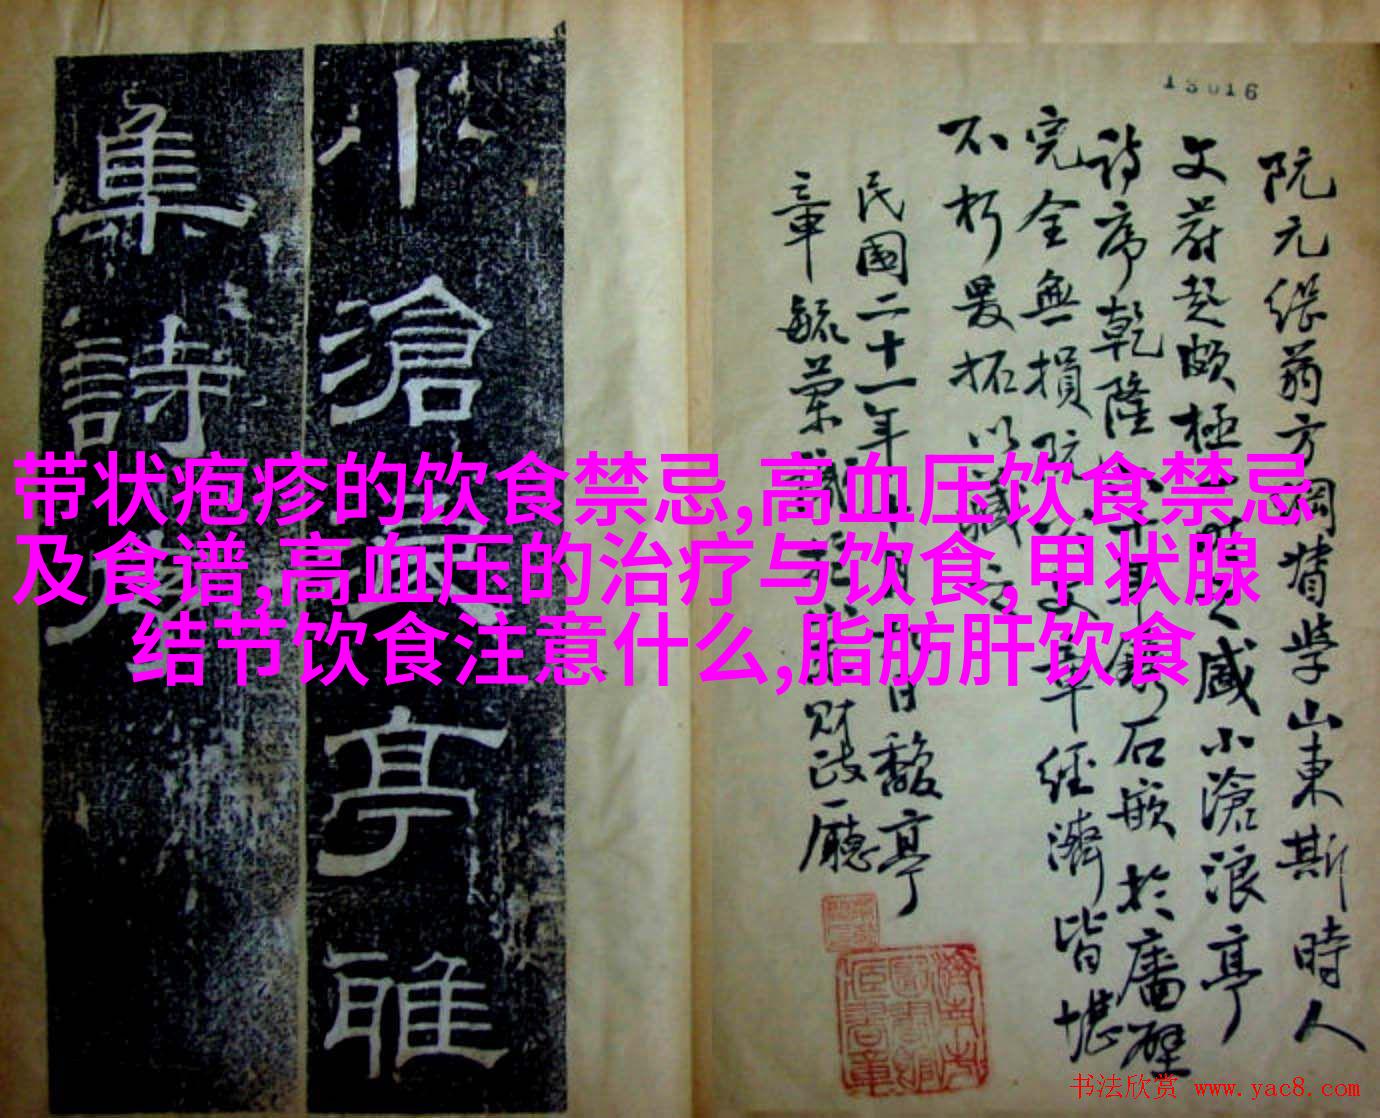 13016
阮元偕翁方綱督学山東斯時人
文蔚起颇極
盛小滄浪亭
詩序乾隆
石嵌於廧壁
完全無損
文章經濟皆堪
不朽爰拓以
民國二十一年
日馥亭
章毓蘭
財政廳
小滄
亭雅
集詩
带状疱疹的饮食禁忌,高血压饮食禁忌
及食谱,高血压的治疗与饮食,甲状腺
结节饮食注意什么,脂肪肝饮食
书法欣赏 www.yac8.com